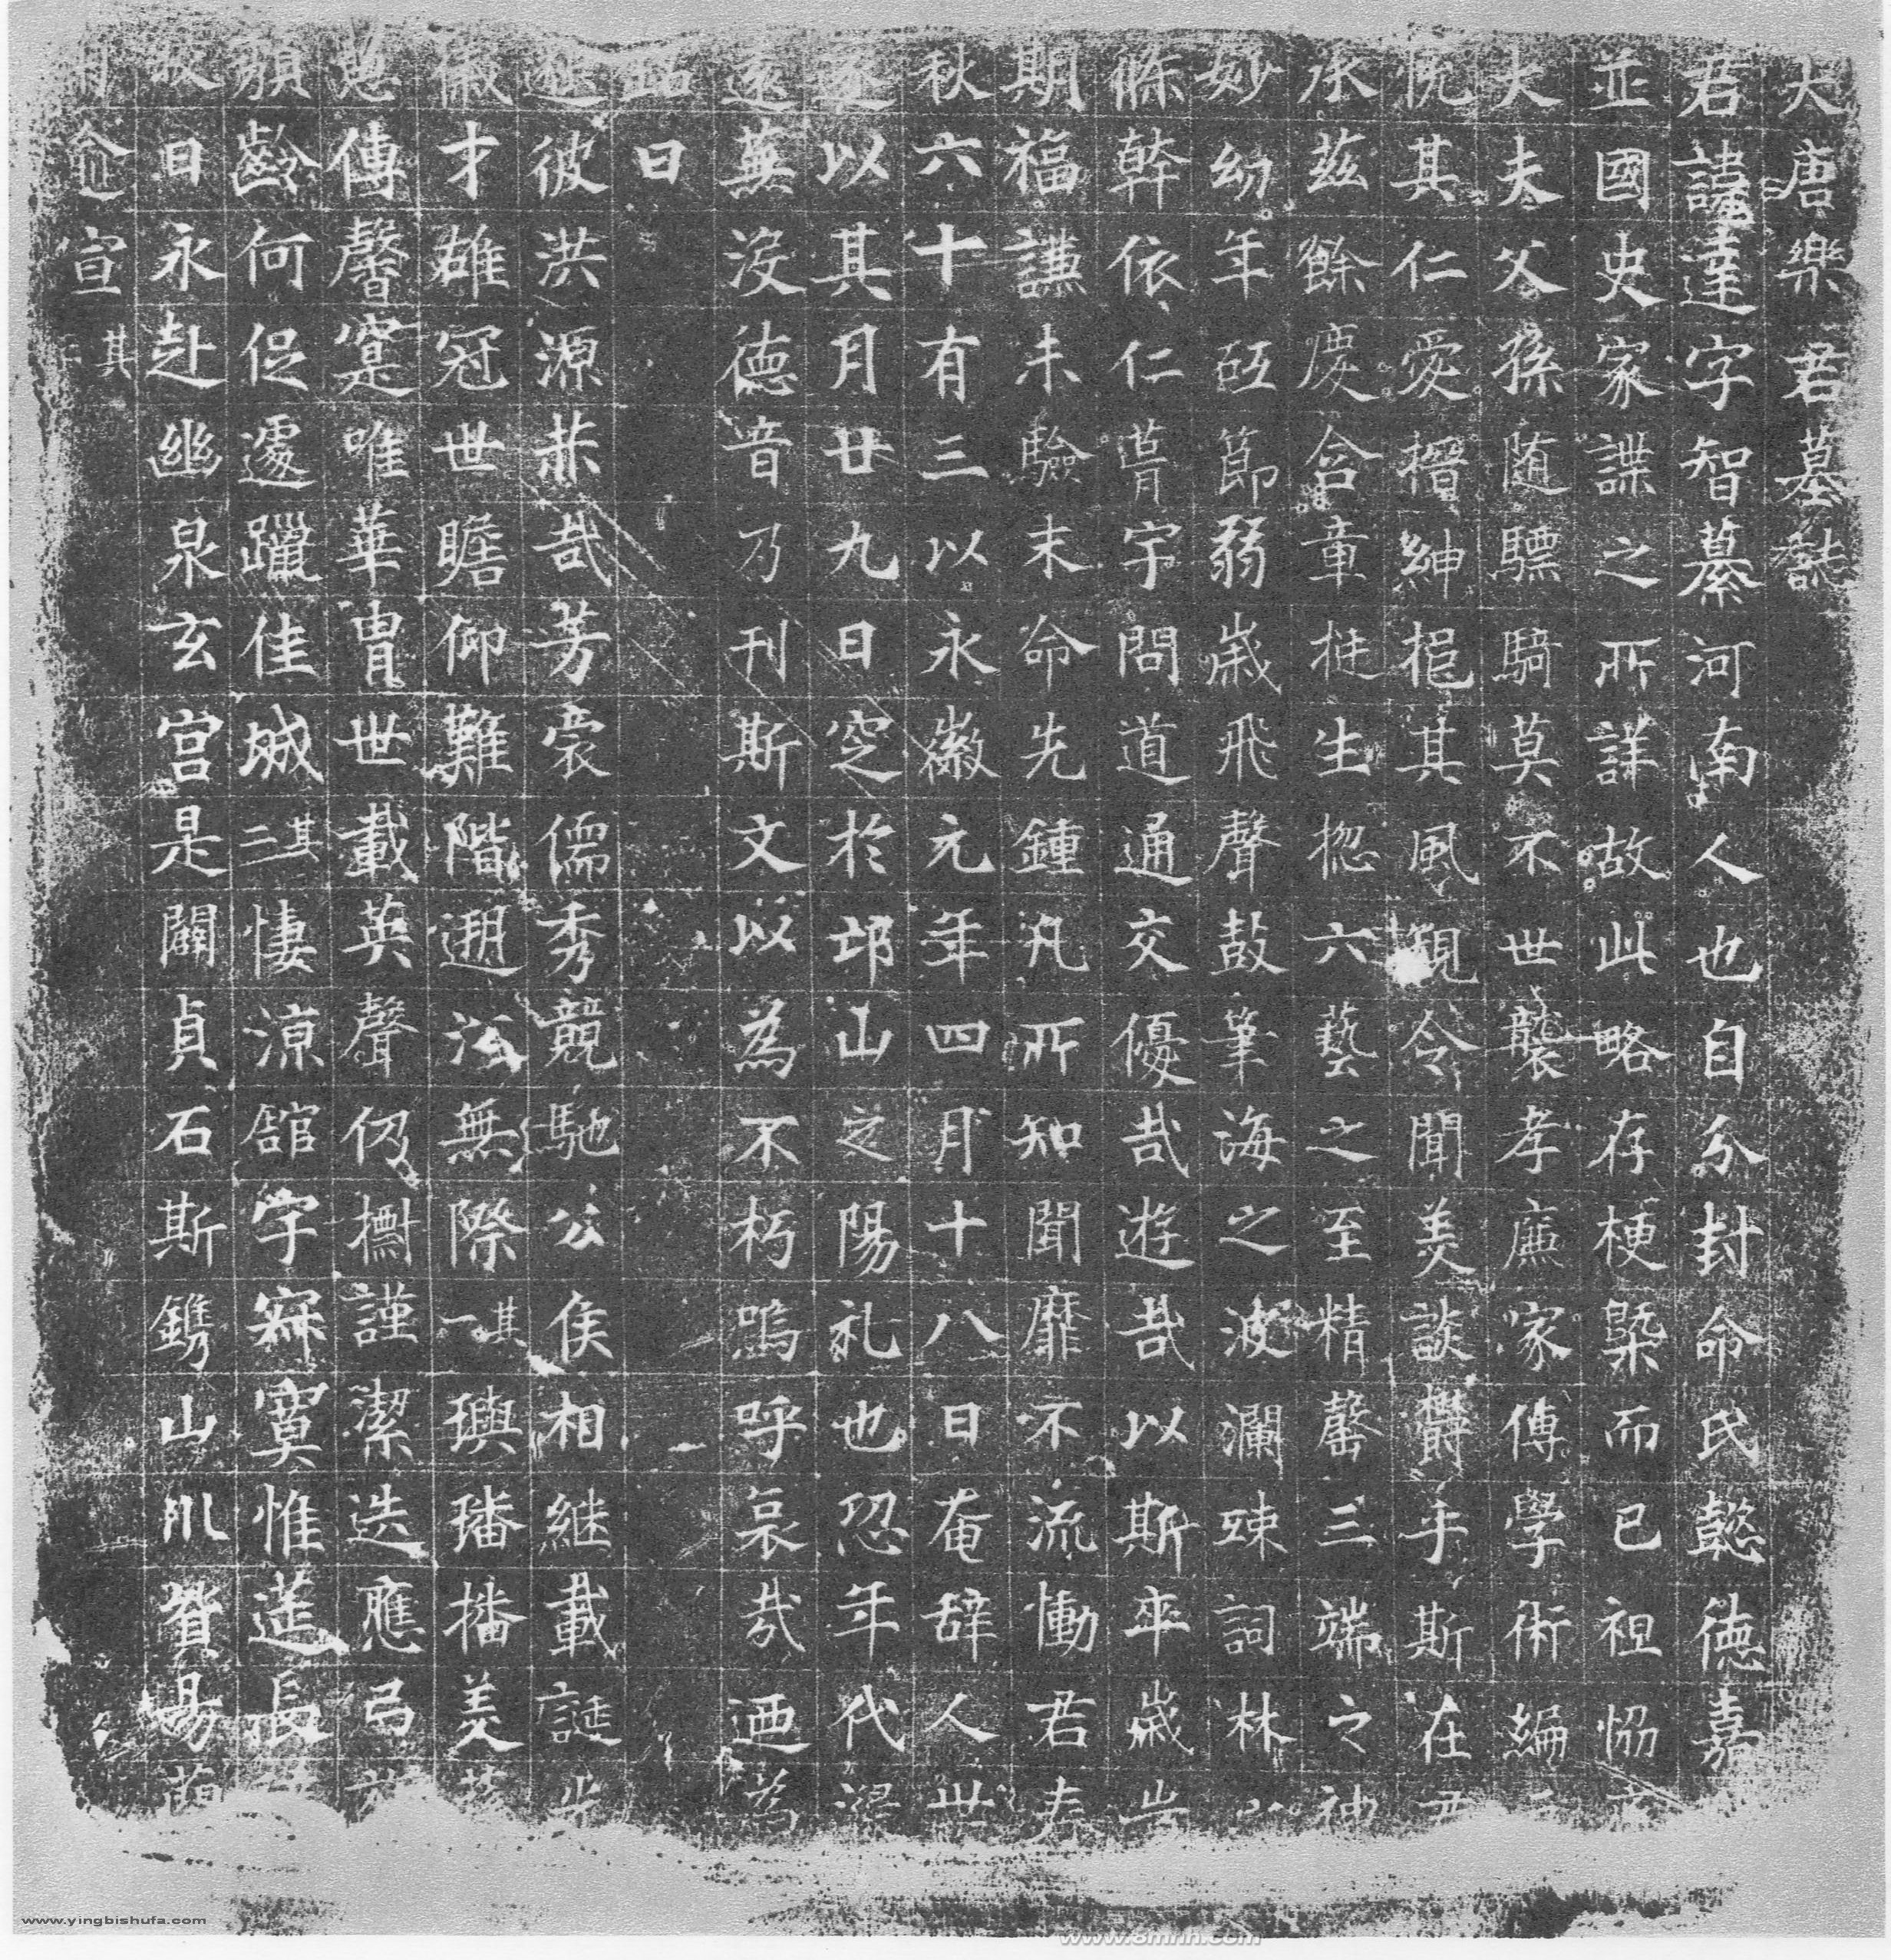 大唐樂君墓誌
君諱達字智纂河南人也自分封命氏懿德嘉
並國史家諜之所詳故此略存梗槩而已祖恊
大夫父孫随驃騎莫不世襲孝廉家傳學術編
悦其仁愛搢紳挹其風規令聞美談欝乎斯在
承兹餘慶含章挺生揔六藝之至精罄三端之神
妙幼年砥節弱歲飛聲鼓筆海之波瀾竦詞林
條幹依仁莦宇問道通交優哉遊哉以斯卒歲
期福謙未驗末命先鍾凡所知聞靡不流慟君春
秋六十有三以永徽元年四月十八日奄辞人世
遂以其月廿九日窆於邙山之陽礼也恐年代
遠蕪没德音乃刊斯文以為不朽嗚呼哀哉迺為
銘曰
遐彼洪源恭哉芳裔儒秀競馳公侯相継載誕
徽才雄冠世瞻仰難階遡沿無際其一 璵璠播美
遠傳馨寔唯華胄世載英聲仍撝謹潔迭應弓
頹齡何促遽躐佳城其二 悽凉舘宇寂寞帷筵長
日永赴幽泉玄宮是闢貞石斯鐫山川賞易
宣 其
www.yingbishufa.com
www.8mhh.com